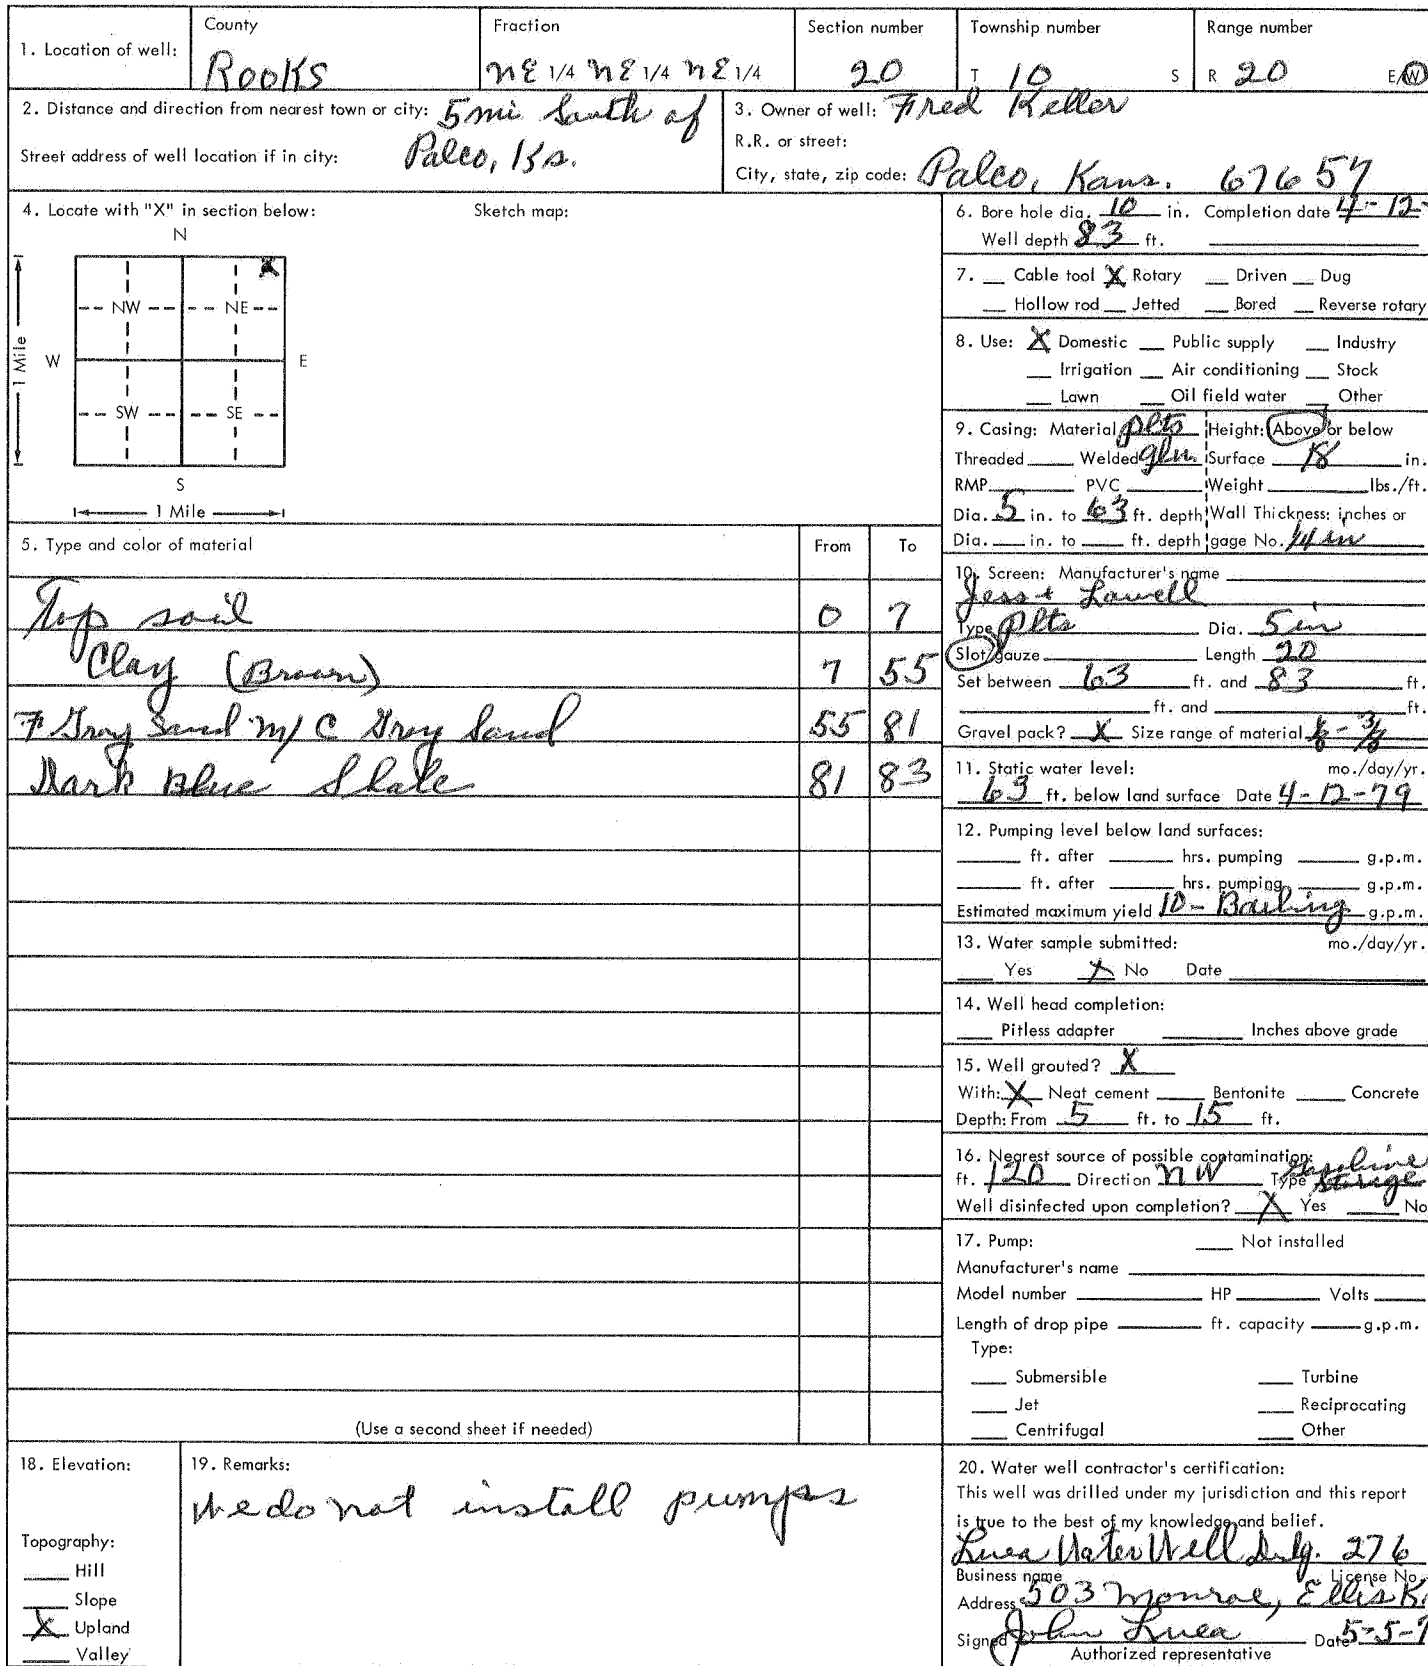 1. Location of well:
County
Rooks
Fraction
NE 1/4 NE 1/4 NE 1/4
Section number
20
Township number
T 10 S
Range number
R 20 E/W
2. Distance and direction from nearest town or city: 5 mi South of
Street address of well location if in city: Palco, Ks.
3. Owner of well: Fred Keller
R.R. or street:
City, state, zip code: Palco, Kans. 67657
4. Locate with "X" in section below:
Sketch map:
N
X
NW NE
W E
1 Mile
SW SE
S
1 Mile
5. Type and color of material From To
Top soil 0 7
Clay (Brown) 7 55
F Gray Sand M/C Gray Sand 55 81
Dark Blue Shale 81 83
(Use a second sheet if needed)
6. Bore hole dia. 10 in. Completion date 4-12-
Well depth 83 ft.
7. Cable tool X Rotary Driven Dug
Hollow rod Jetted Bored Reverse rotary
8. Use: X Domestic Public supply Industry
Irrigation Air conditioning Stock
Lawn Oil field water Other
9. Casing: Material plts Height: Above or below
Threaded Welded Surface 18 in.
RMP PVC Weight lbs./ft.
Dia. 5 in. to 63 ft. depth Wall Thickness: inches or
Dia. in. to ft. depth gage No. 1/4 in
10. Screen: Manufacturer's name
Jess + Lowell
Type plts Dia. 5 in
Slot/gauze Length 20
Set between 63 ft. and 83 ft.
ft. and ft.
Gravel pack? X Size range of material
11. Static water level: mo./day/yr.
63 ft. below land surface Date 4-12-79
12. Pumping level below land surfaces:
ft. after hrs. pumping g.p.m.
ft. after hrs. pumping g.p.m.
Estimated maximum yield 10 - Bailing g.p.m.
13. Water sample submitted: mo./day/yr.
Yes X No Date
14. Well head completion:
Pitless adapter Inches above grade
15. Well grouted? X
With: X Neat cement Bentonite Concrete
Depth: From 5 ft. to 15 ft.
16. Nearest source of possible contamination: Gasoline
ft. 120 Direction NW Type storage
Well disinfected upon completion? X Yes No
17. Pump: Not installed
Manufacturer's name
Model number HP Volts
Length of drop pipe ft. capacity g.p.m.
Type:
Submersible Turbine
Jet Reciprocating
Centrifugal Other
18. Elevation:
Topography:
Hill
Slope
X Upland
Valley
19. Remarks:
We do not install pumps
20. Water well contractor's certification:
This well was drilled under my jurisdiction and this report
is true to the best of my knowledge and belief.
Luea Water Well Drlg. 276
Business name License No.
Address 503 Monroe, Ellis
Signed John Luea Date 5-5-
Authorized representative